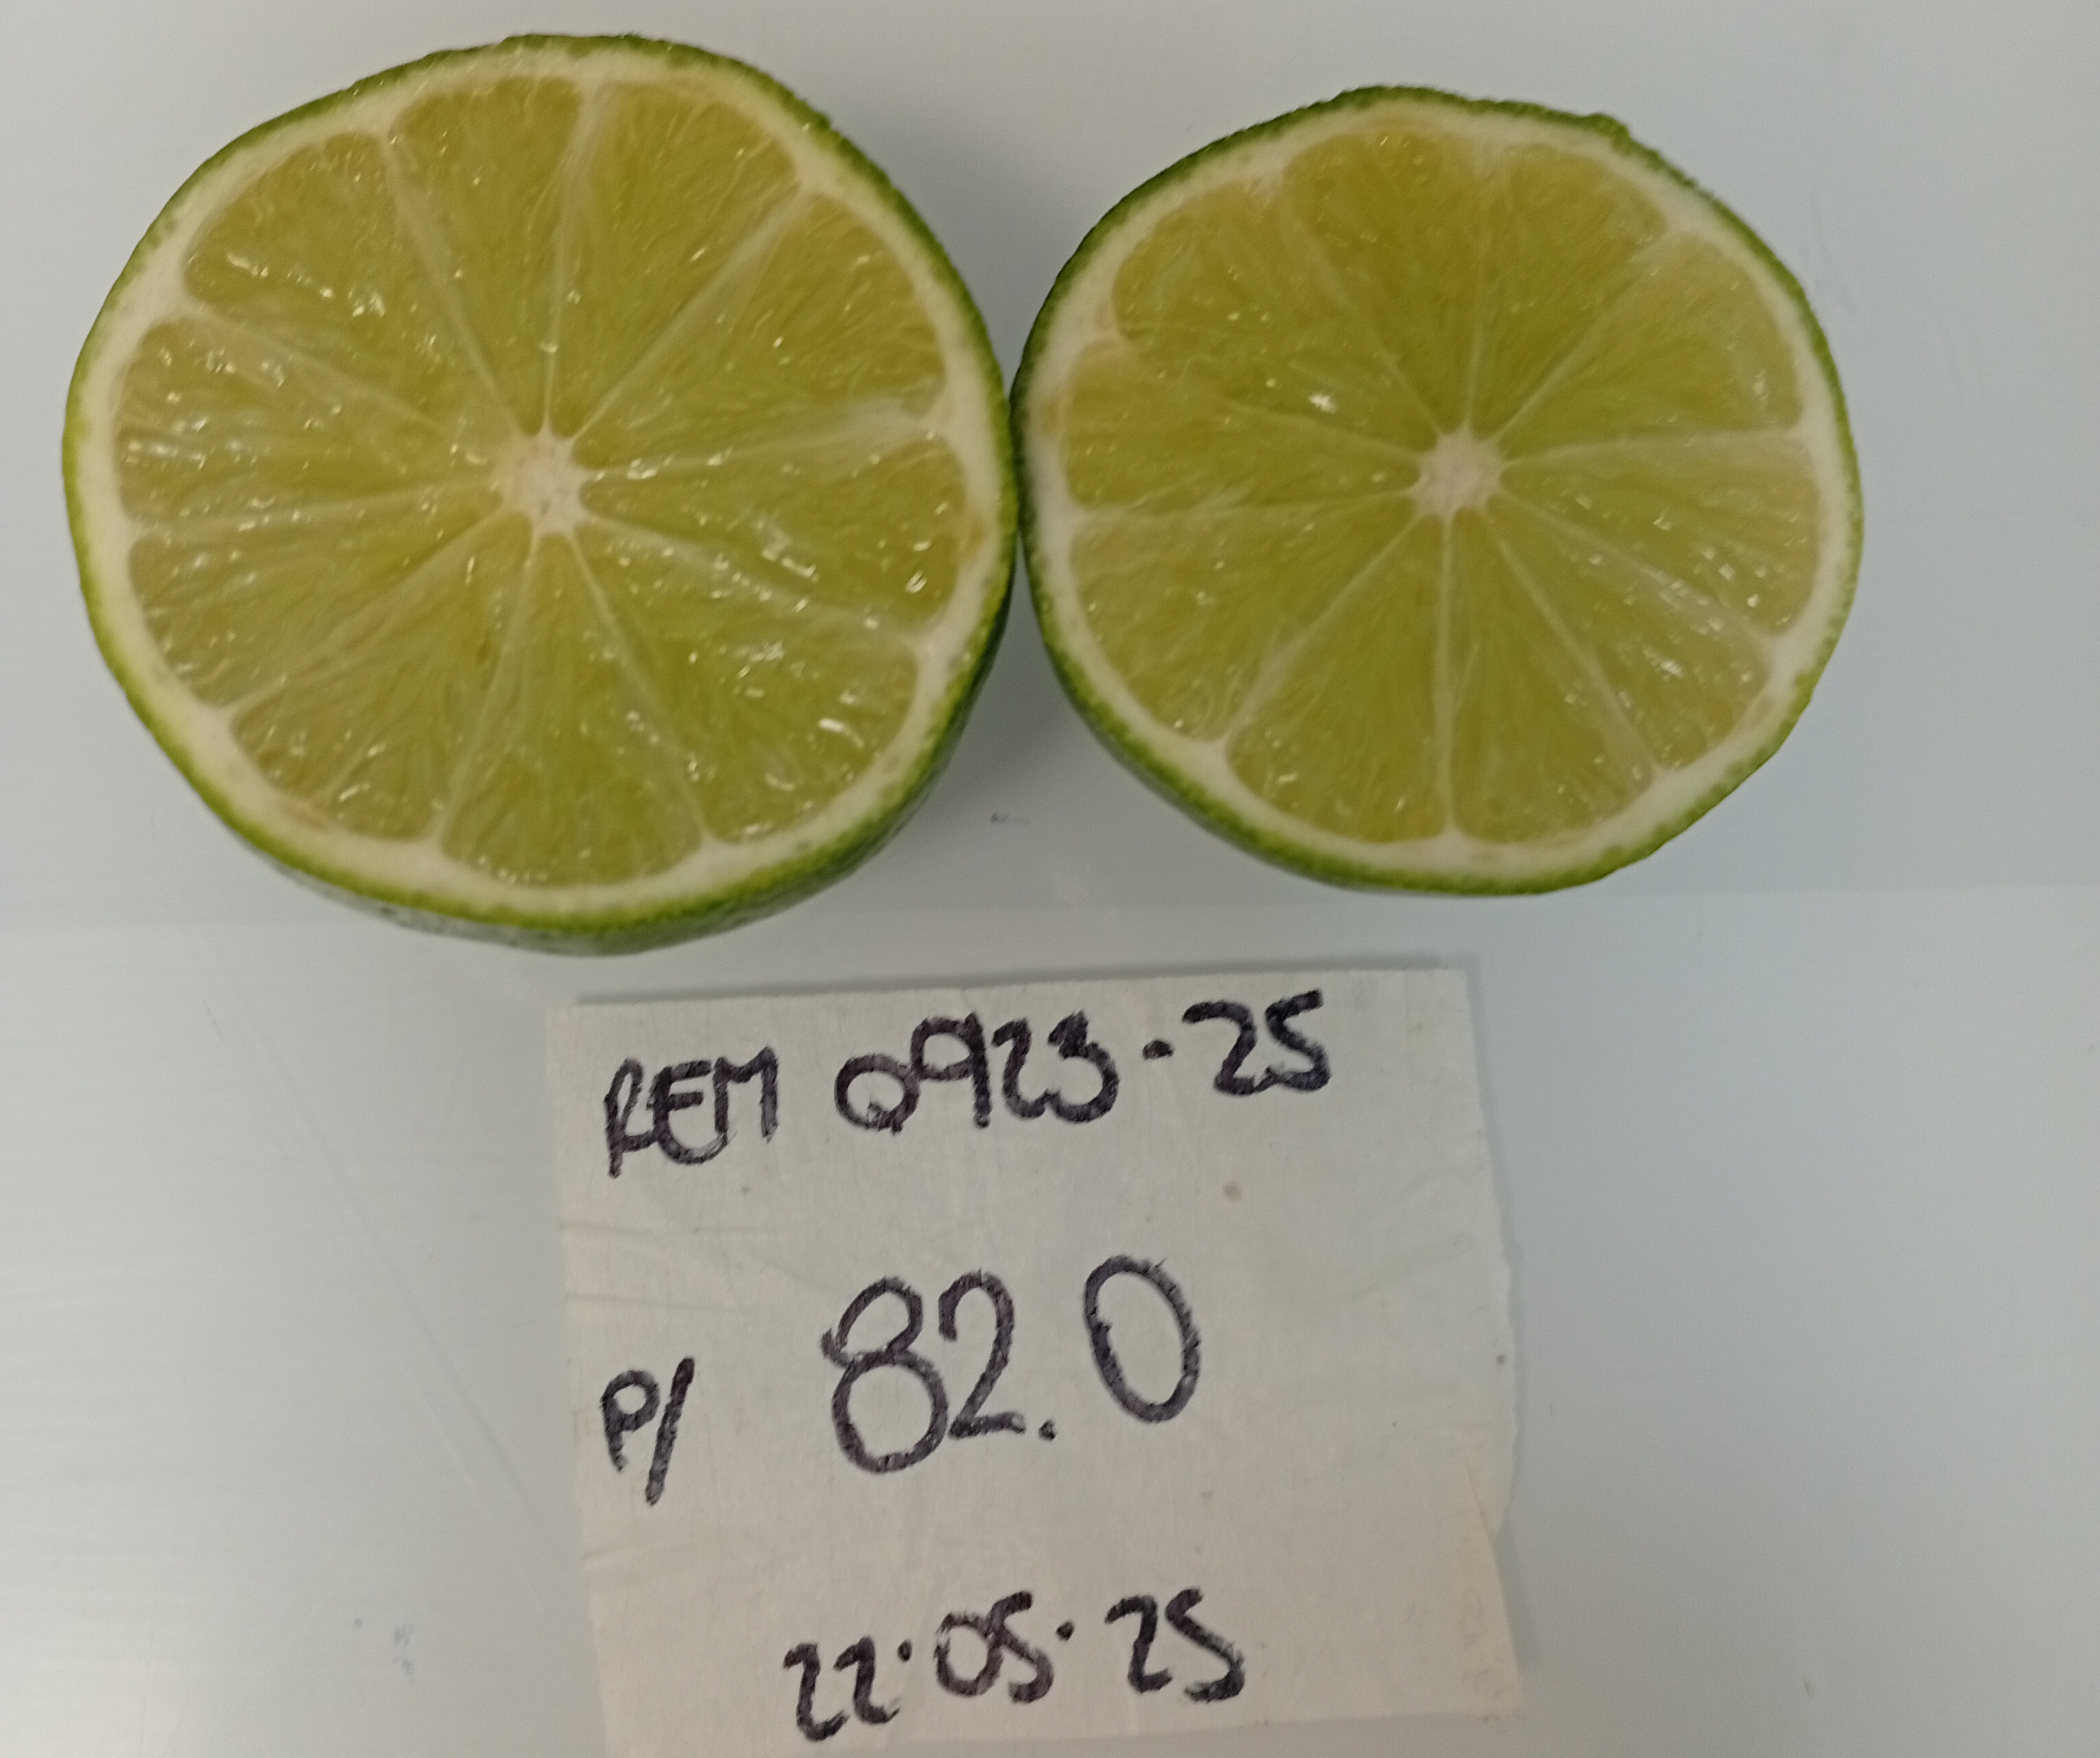 REM 0923-25
P/ 82.0
22.05.25